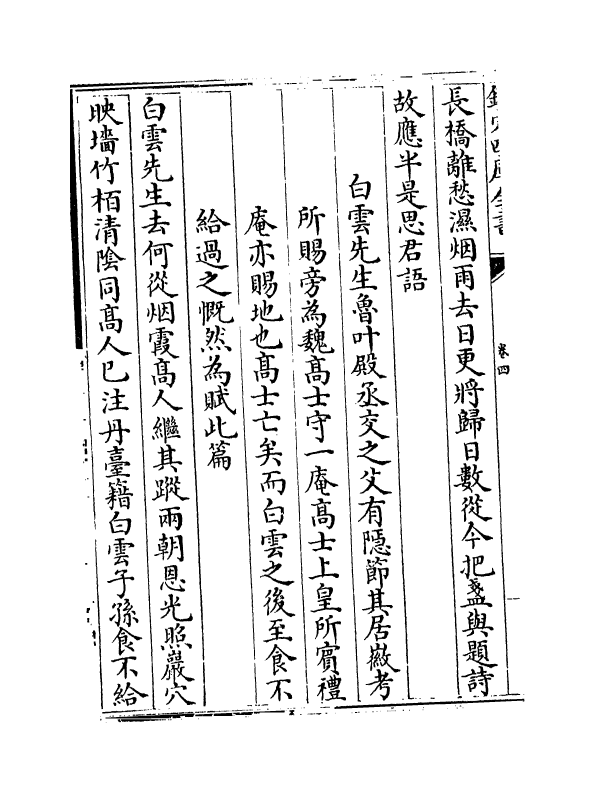 欽定四庫全書
卷四
長橋離愁濕烟雨去日更將歸日數從今把盞與題詩
故應半是思君語
白雲先生魯叶殿丞交之父有隱節其居徽考
所賜旁為魏髙士守一庵髙士上皇所賓禮
庵亦賜地也髙士亡矣而白雲之後至食不
給過之慨然為賦此篇
白雲先生去何從烟霞髙人繼其蹤兩朝恩光照巖穴
映墻竹栢清隂同髙人已注丹臺籍白雲子孫食不給